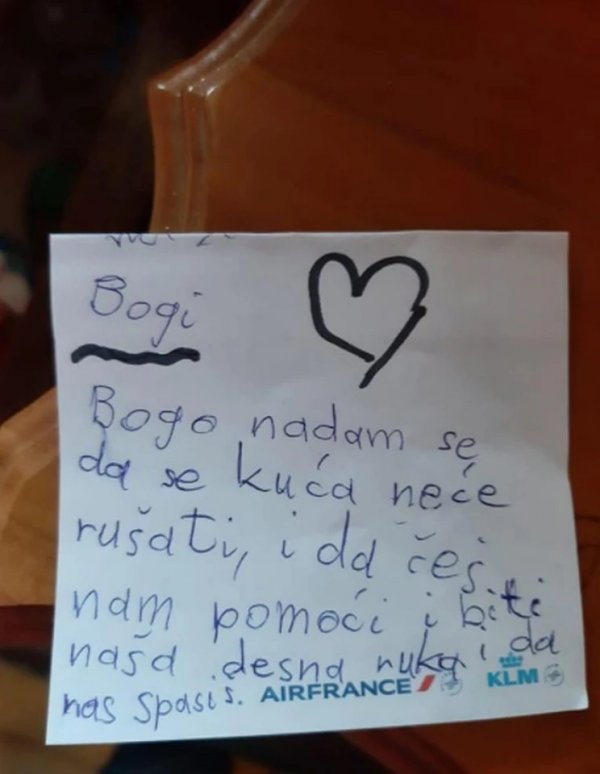 Bogi
Bogo nadam se
da se kuća neće
rušati, i da češ
nam pomoći i biti
naša desna ruka i da
nas spasiš. AIRFRANCE KLM